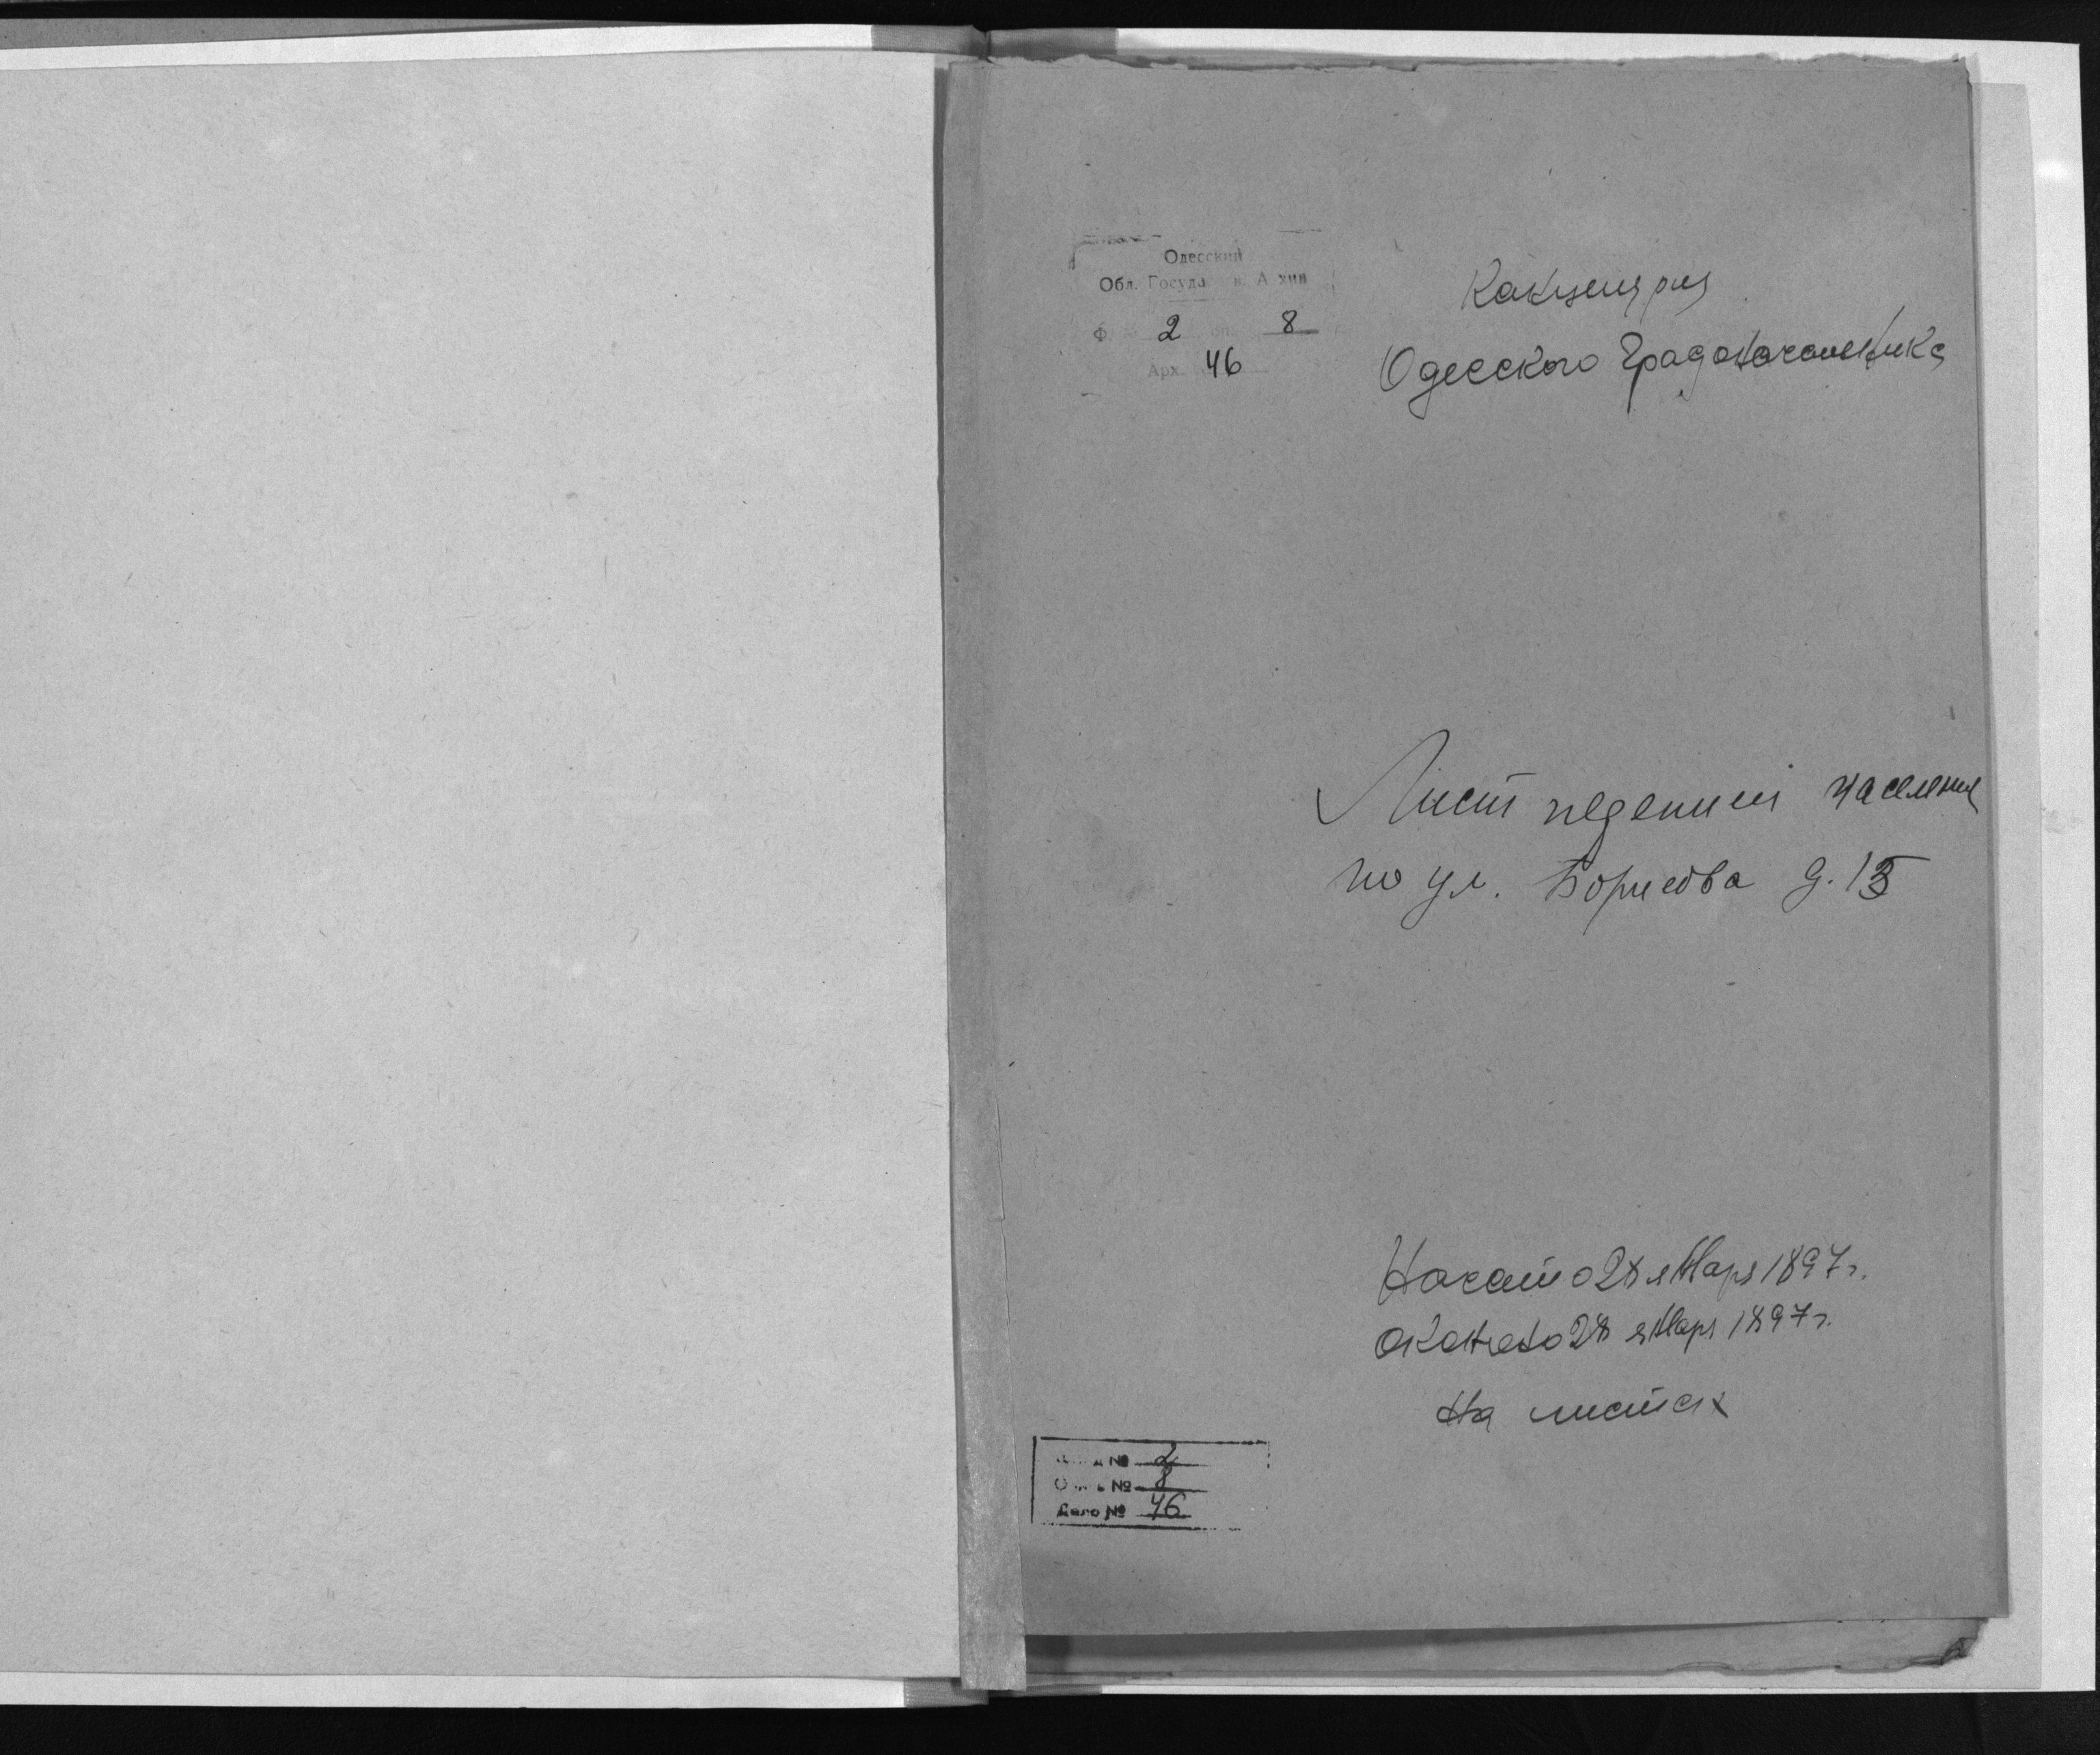 Одесский
Обл. Госуда в. А хив
Ф 2 оп. 8
Арх. 46
Канцелярия
Одесского Градоначальника
Лист переписи населения
по ул. Борисова д. 13
Начато 28 января 1897 г.
Окончено 28 январ 1897 г.
На листах
№ 2
№ 8
Дело № 46